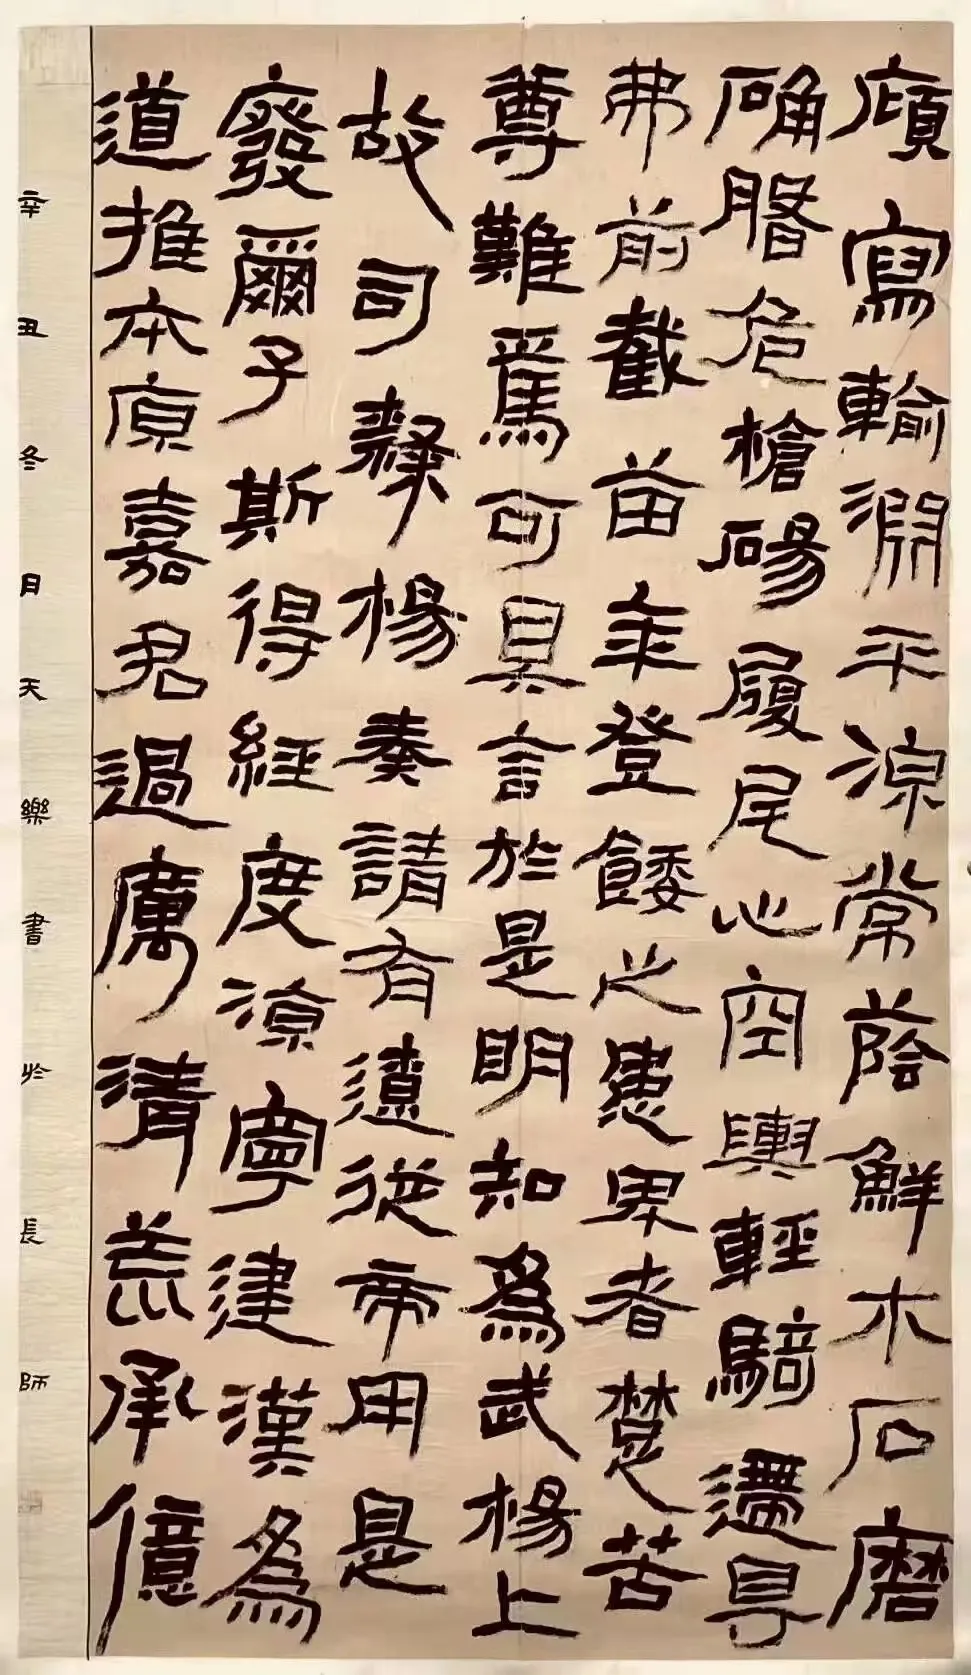 廎寫輸淵平涼常蔭鮮木石磨
确臨危槍碭履尾心空輿輕騎遰㝵
弗前截苗年登餧之患卑者楚苦
尊難焉可具言於是明知為武楊上
故司隸楊奏請有遼從帝用是
廢爾子斯得經度涼寧建漢為
道推本原嘉君過厲清荒承億
辛丑冬月天樂書於長師